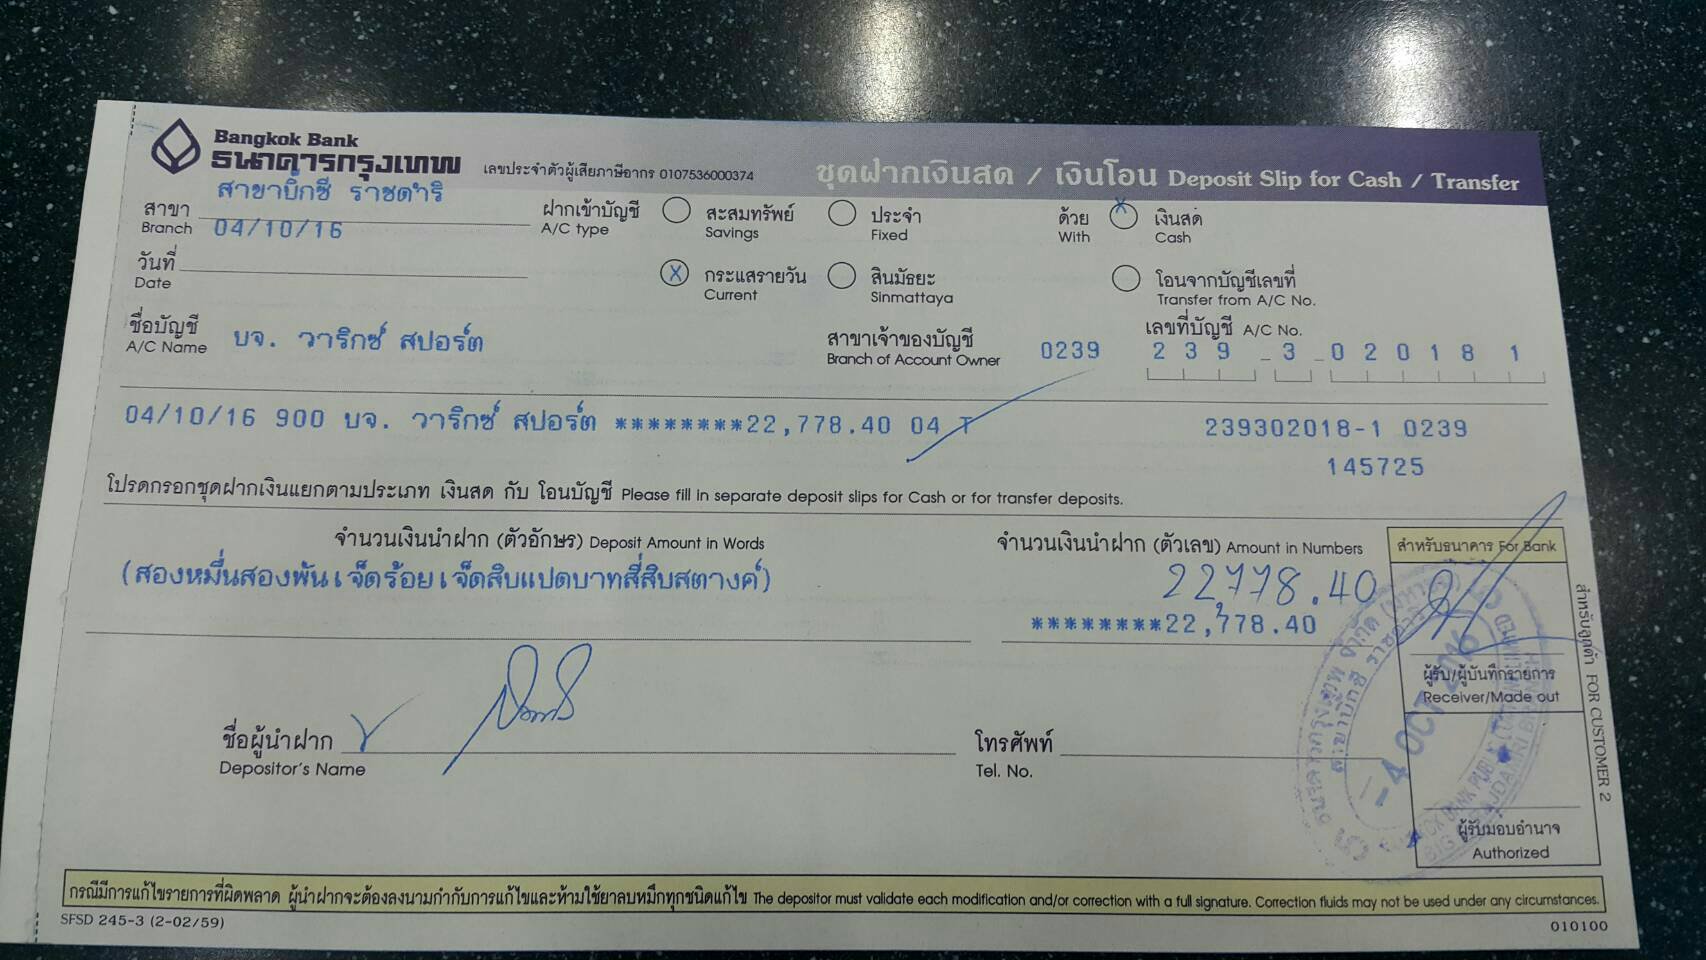 Bangkok Bank
ธนาคารกรุงเทพ
เลขประจำตัวผู้เสียภาษีอากร 0107536000374
ชุดฝากเงินสด / เงินโอน Deposit Slip for Cash / Transfer
สาขาบิ๊กซี ราชดำริ
สาขา
Branch
ฝากเข้าบัญชี
A/C type
สะสมทรัพย์
Savings
ประจำ
Fixed
ด้วย
With
X
เงินสด
Cash
04/10/16
วันที่
Date
X
กระแสรายวัน
Current
สินมัธยะ
Sinmattaya
โอนจากบัญชีเลขที่
Transfer from A/C No.
ชื่อบัญชี
A/C Name
บจ. วาริกซ์ สปอร์ต
สาขาเจ้าของบัญชี
Branch of Account Owner
0239
เลขที่บัญชี A/C No.
239-3-020181
04/10/16 900 บจ. วาริกซ์ สปอร์ต ********22,778.40 04 T 239302018-1 0239
145725
โปรดกรอกชุดฝากเงินแยกตามประเภท เงินสด กับ โอนบัญชี Please fill in separate deposit slips for Cash or for transfer deposits.
จำนวนเงินนำฝาก (ตัวอักษร) Deposit Amount in Words
จำนวนเงินนำฝาก (ตัวเลข) Amount in Numbers
สำหรับธนาคาร For Bank
(สองหมื่นสองพันเจ็ดร้อยเจ็ดสิบแปดบาทสี่สิบสตางค์)
22,778.40
********22,778.40
ผู้รับ/ผู้บันทึกรายการ
Receiver/Made out
ชื่อผู้นำฝาก
Depositor's Name
โทรศัพท์
Tel. No.
-4 OCT 2016
สำหรับลูกค้า FOR CUSTOMER 2
ผู้รับมอบอำนาจ
Authorized
กรณีมีการแก้ไขรายการที่ผิดพลาด ผู้นำฝากจะต้องลงนามกำกับการแก้ไขและห้ามใช้ยาลบหมึกทุกชนิดแก้ไข The depositor must validate each modification and/or correction with a full signature. Correction fluids may not be used under any circumstances.
SFSD 245-3 (2-02/59)
010100